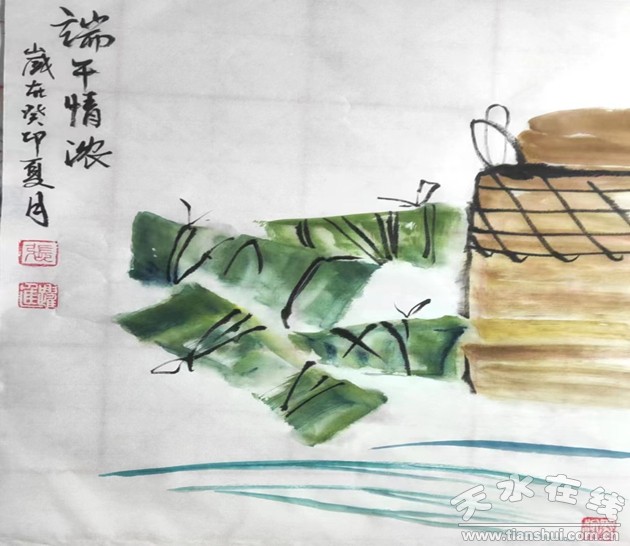 端午情浓
岁在癸卯夏月
張
天水在线
www.tianshui.com.cn